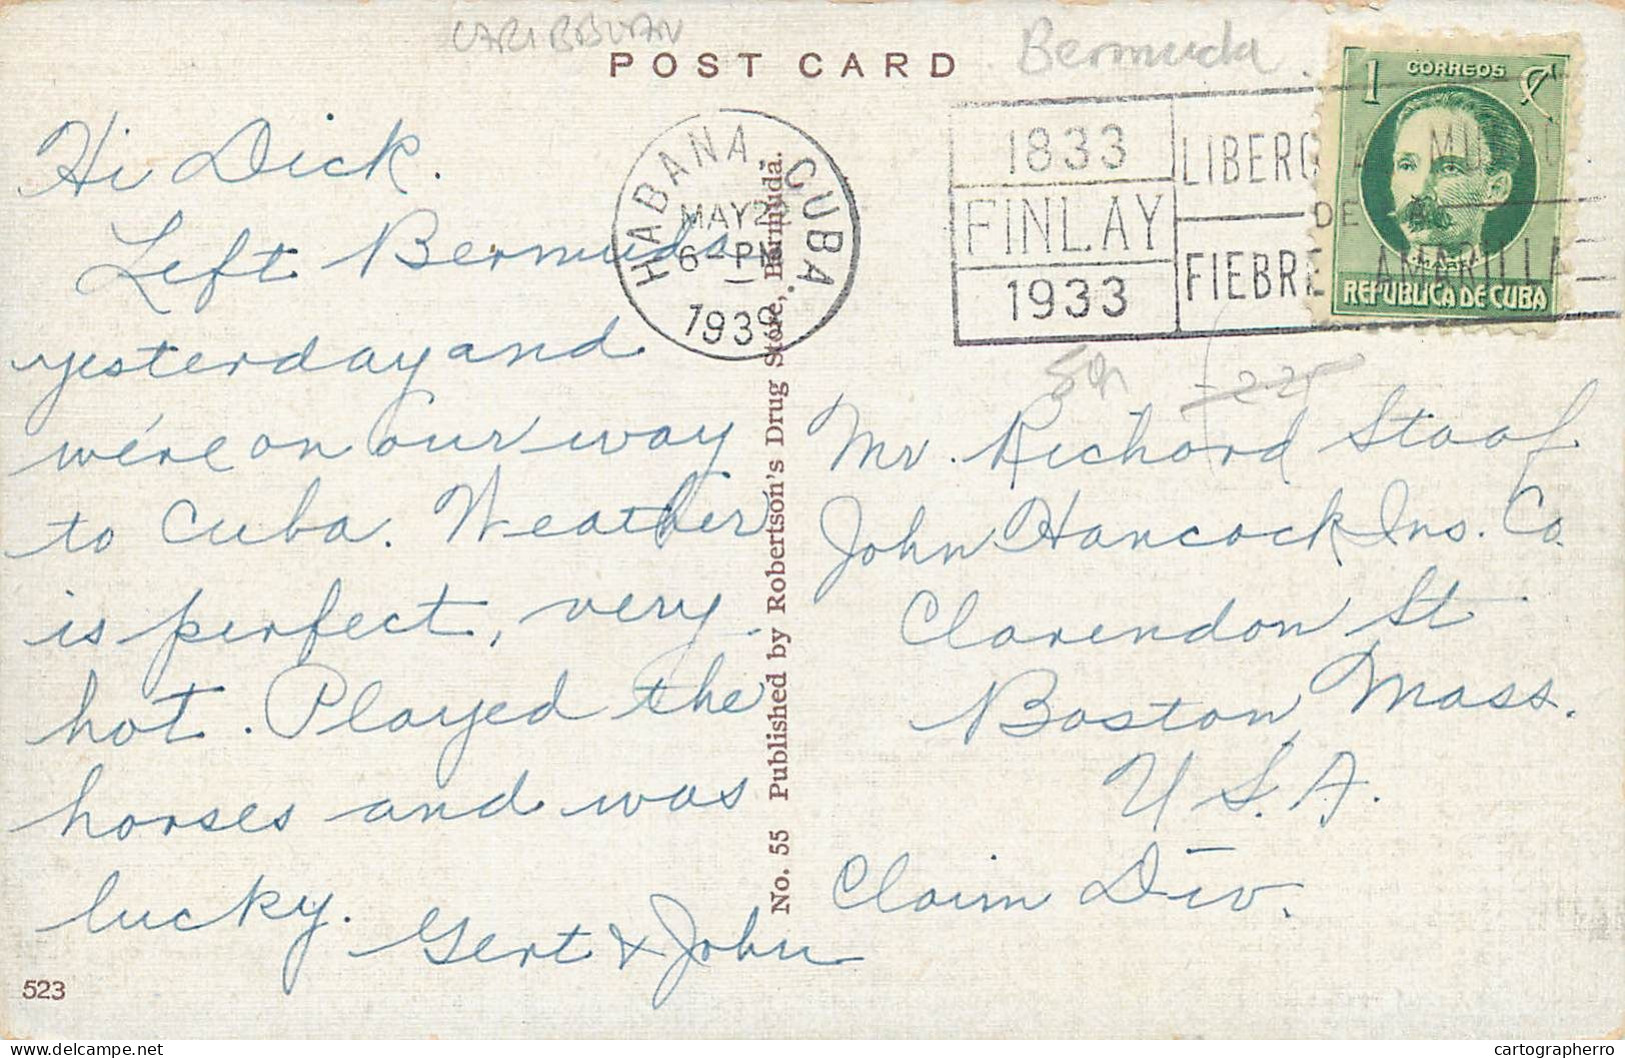 CARIBBEAN
Bermuda
POST CARD
Hi Dick.
Left Bermuda
yesterday and
we're on our way
to Cuba. Weather
is perfect, very
hot. Played the
horses and was
lucky.
Gert & John
523
No. 55 Published by Robertson's Drug Store, Bermuda.
HABANA, CUBA.
MAY
6 - PM
193
1833
FINLAY
1933
LIBERO AL MUNDO
DE LA
FIEBRE AMARILLA
1 CORREOS
REPUBLICA DE CUBA
Mr. Richard Staaf
John Hancock Ins. Co.
Clarendon St
Boston, Mass.
U.S.A.
Claim Div.
cartographerro